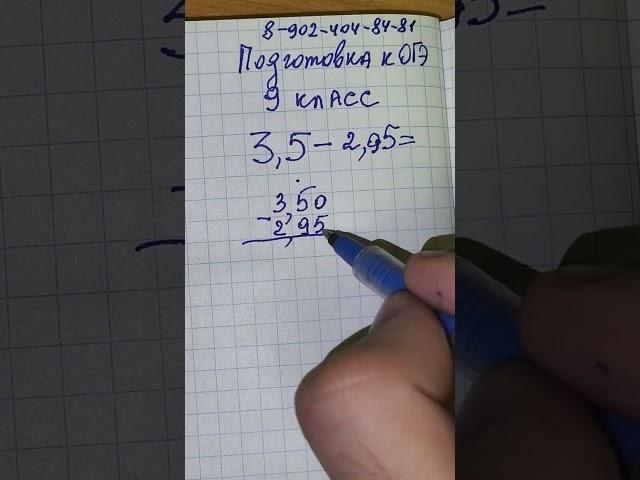 8-902-404-84-81
Подготовка к ОГЭ
9 класс
3,5 - 2,95 =
3,50
- 2,95